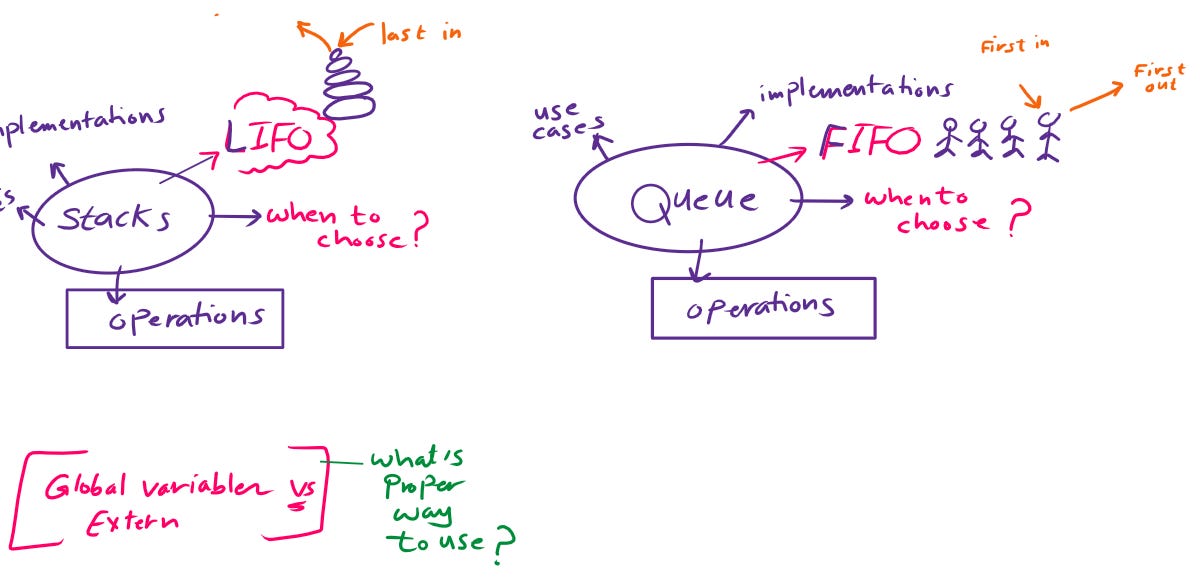 last in
mplementations
LIFO
Stacks
when to
choose?
operations
First in
First
out
implementations
use
cases
FIFO
Queue
when to
choose?
operations
Global variables vs
Extern
what's
Proper
way
to use?